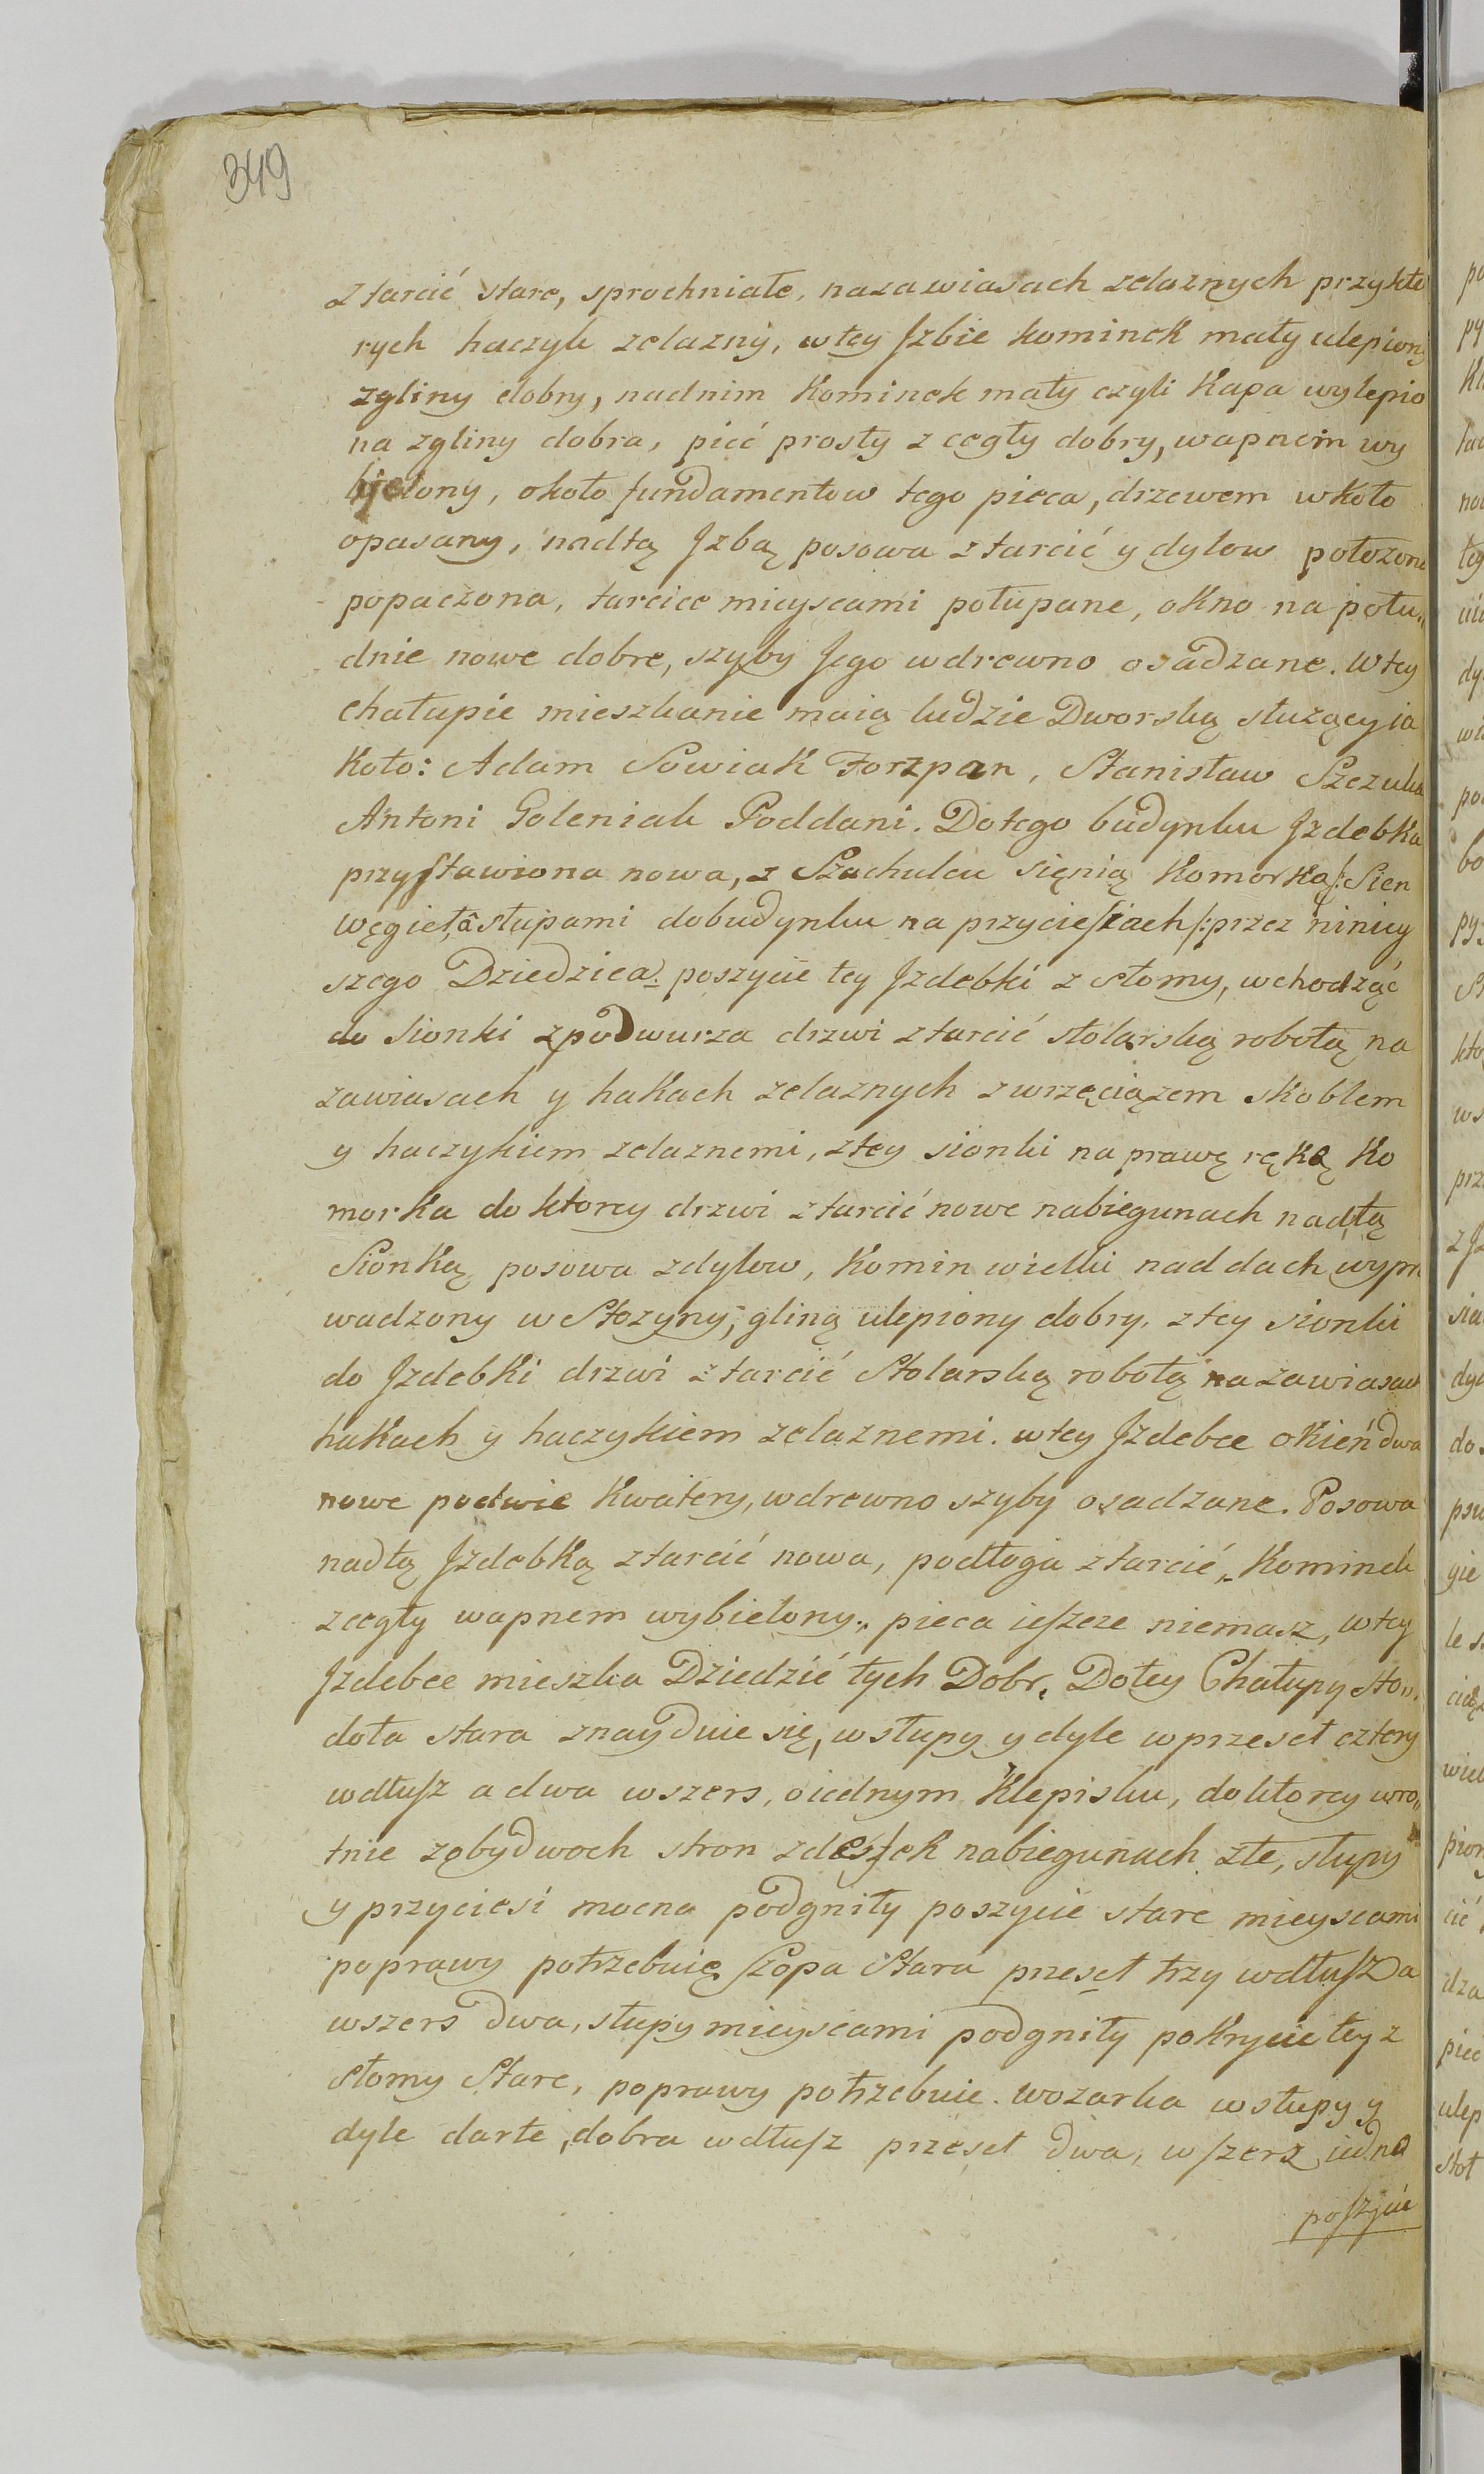 349
z tarcić stare, sprochniałe, nazawiasach zelaznych przykto
rych haczyk zelazny, wtey Jzbie kominek mały ulepiony
zgliny dobry, nadnim Kominek mały czyli Kapa wylepio
na zgliny dobra, pieć prosty z cegły dobry, wapnem wy
bielony, około fundamentow tego pieca, drzewem wkoło
opasany, nadtą Jzbą posowa ztarcić y dylow położona
popaczona, tarcice mieyscami połupane, okno na połu„
dnie nowe dobre, szyby Jego wdrewno osadzane. Wtey
chałupie mieszkanie maią ludzie Dworską służący ia
koto: Adam Sowiak Forzpan, Stanisław Szczuka
Antoni Goleniak Poddani. Dotego budynku Jzdebka
przystawiona nowa, z Szachulcu sięnią komorką /: Sien
węgieł, a słupami dobudynku na przyciesiach /: przez niniey
szego Dziedzica :/ poszycie tey Jzdebki z słomy, wchodząc
do sionki zpodwurza drzwi ztarcić stolarską robotą na
zawiasach y hakach zelaznych zwrzęciązem skoblem
y haczykiem zelaznemi, ztey sionki na prawę ręką Ko
morka do ktorey drzwi ztarcić nowe nabiegunach nadtą
Sionką posowa zdylow, Komin wielki nad dach wypro
wadzony w Stozyny, gliną ulepiony dobry, ztey sionki
do Jzdebki drzwi ztarcić Stolarską robotą na zawiasach
hakach y haczykiem zelaznemi. wtey Jzdebce okień dwa
nowe podwie Kwatery, wdrewno szyby osadzane. Posowa
nadtą Jzdebką ztarcić nowa, podłoga ztarcić, Kominek
zcegły wapnem wybielony, pieca ieszcze niemasz, wtey
Jzdebce mieszka Dziedzić tych Dobr. Dotey Chałupy sto„
doła stara znayduie się, wsłupy y dyle wprzeseł cztery
wdłusz a dwa wszers, oiednym Klepisku, doktorey wro„
tnie zobydwoch stron zdeszek nabiegunach złe, słupy
y przyciesi mocno podgniły poszycie stare mieyscami
poprawy potrzebuię szopa Stara przeseł trzy wdłusz a
wszers dwa, słupy mieyscami podgniły pokrycie tey z
słomy Stare, poprawy potrzebuie. wozarka wsłupy y
dyle darte, dobra wdłusz przeseł dwa, wszerz iedno
poszycie